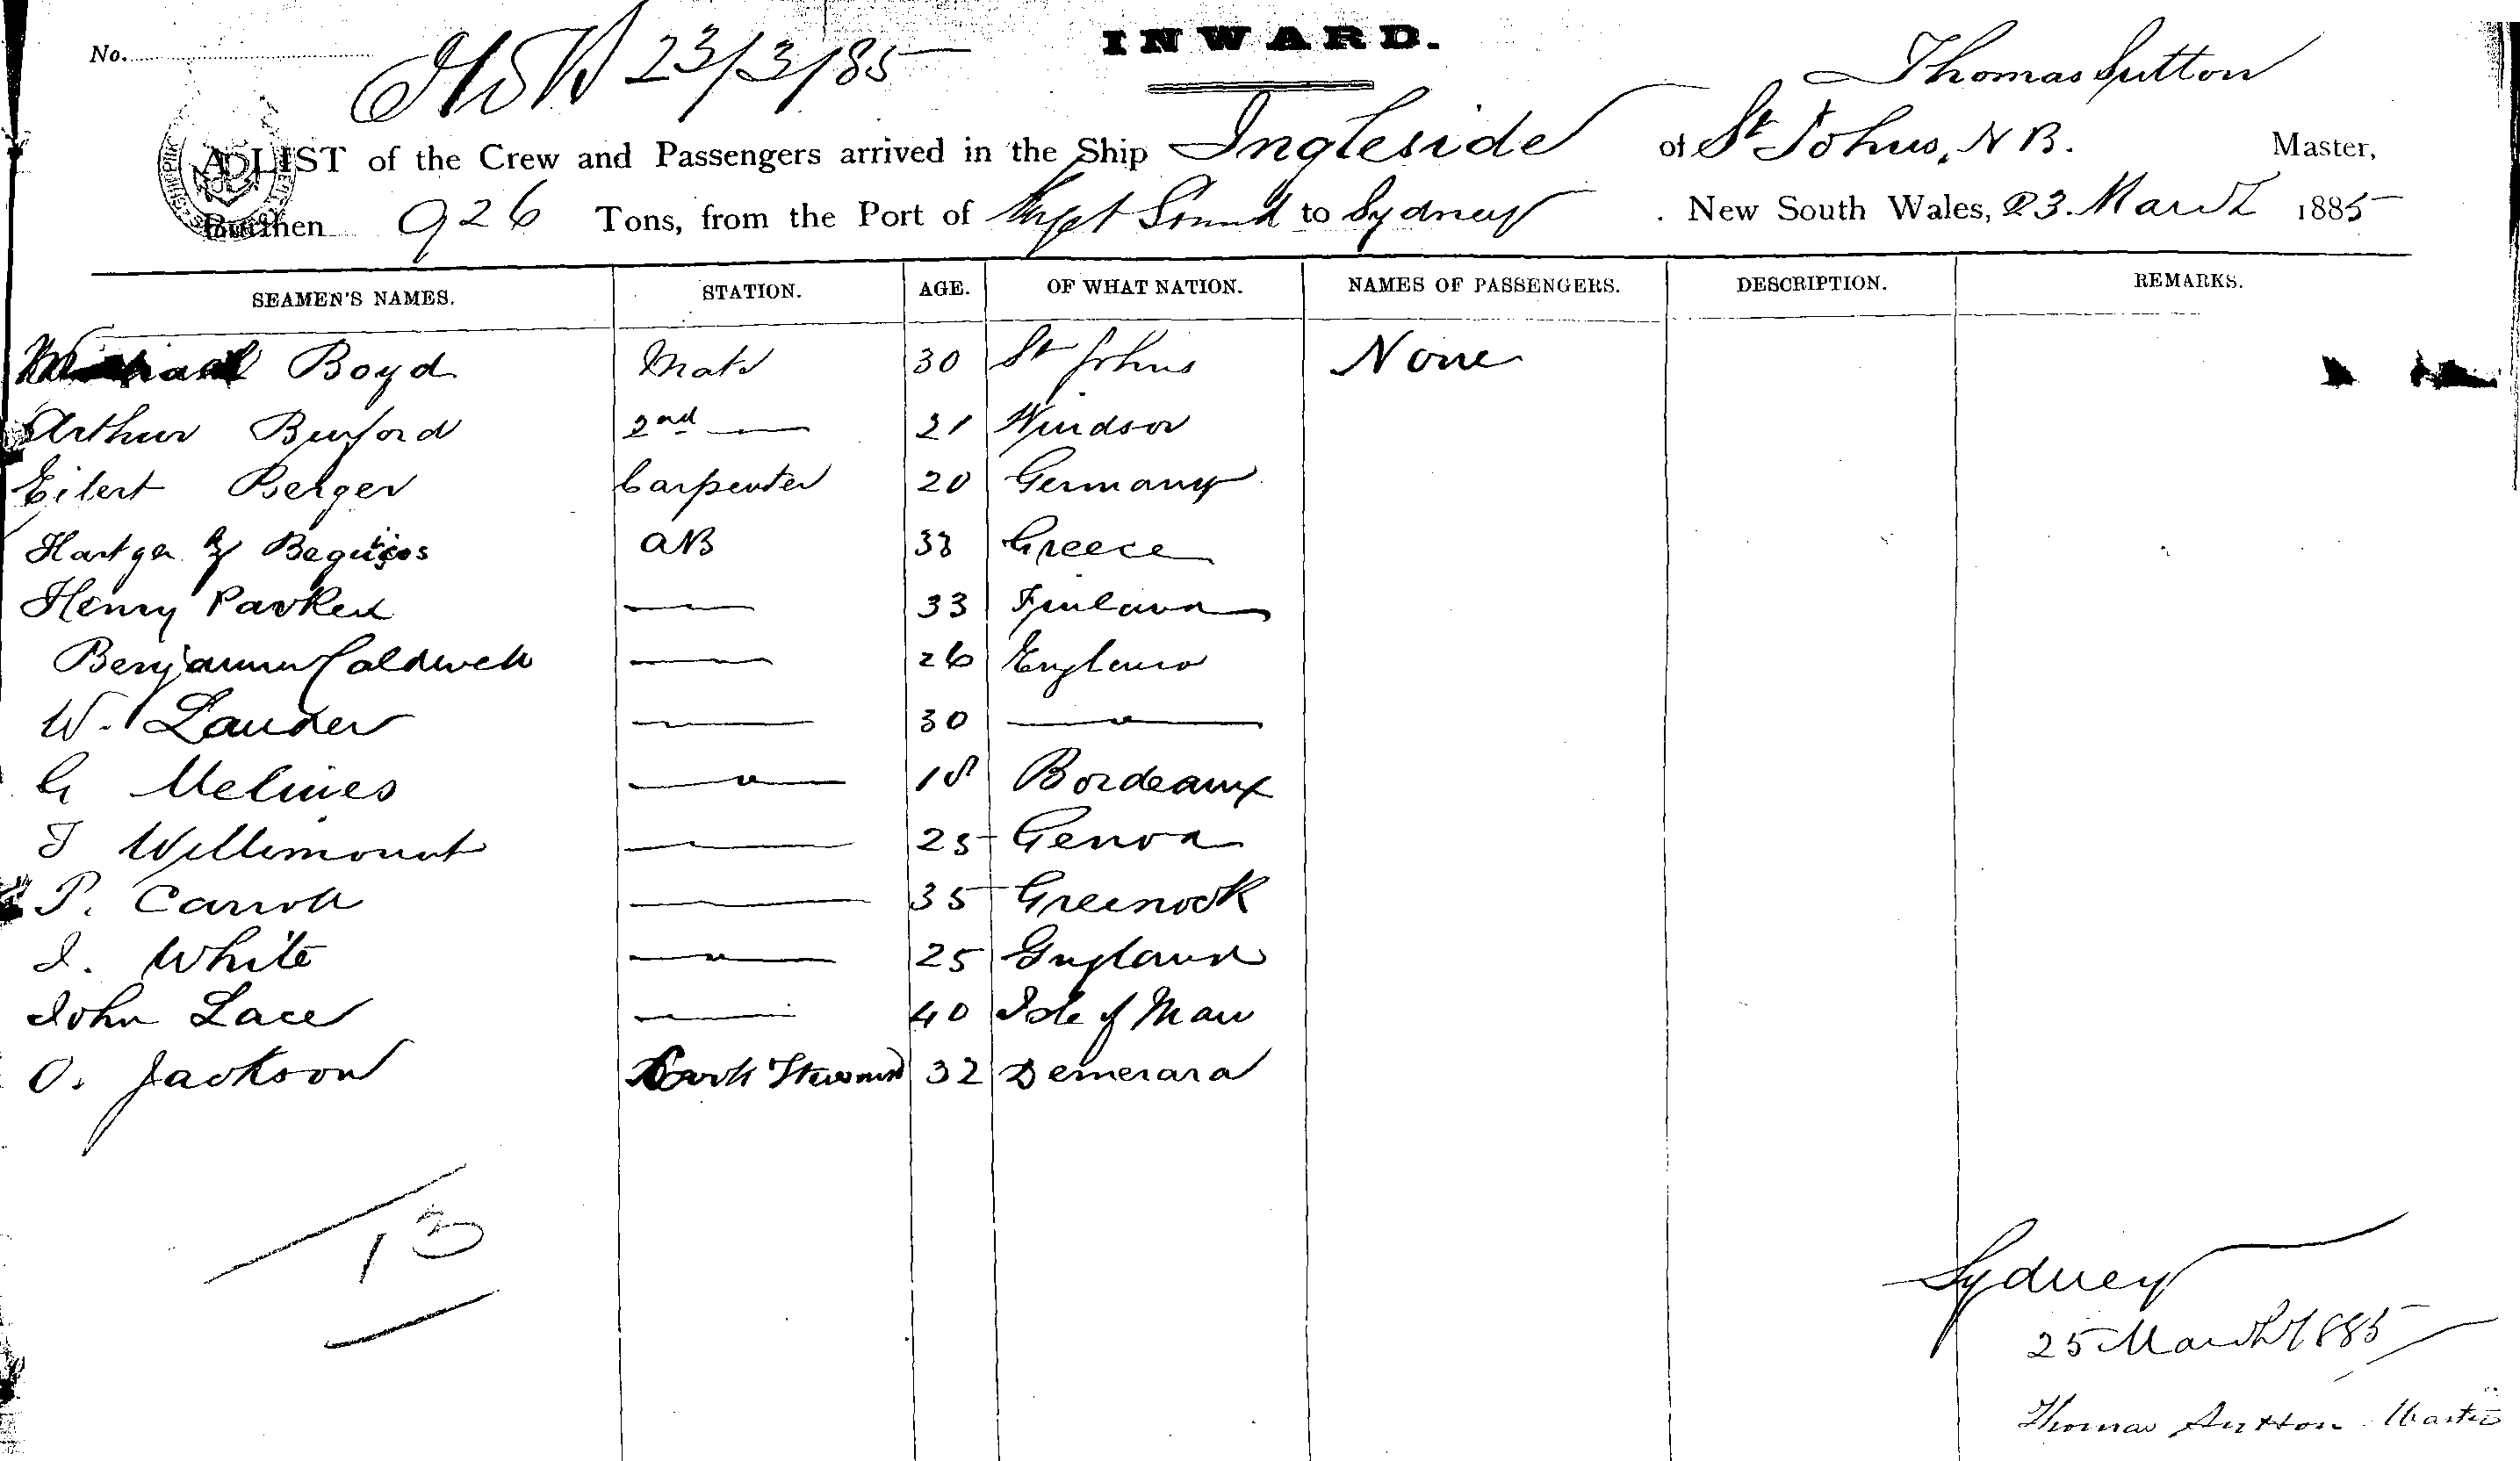 INWARD.
No. 23/3/85
Thomas Sutton
A LIST of the Crew and Passengers arrived in the Ship Ingleside of St Johns, N B. Master,
Burthen 926 Tons, from the Port of Puget Sound to Sydney . New South Wales, 23. March 1885
SEAMEN'S NAMES. STATION. AGE. OF WHAT NATION. NAMES OF PASSENGERS. DESCRIPTION. REMARKS.
Boyd Mate 30 St Johns None
Arthur Burford 2nd — 21 Windsor
Eilert Berger Carpenter 20 Germany
AB 33 Greece
Henry — 33 Finland
Benjamin Caldwell — 26 England
W. Lauder — 30 — " —
G Melines — " — 18 Bordeaux
Willimount — 25 Genoa
P. Carroll — 35 Greenock
I. White — " — 25 England
John Lace — 40 Isle of Man
O. Jackson Cook Steward 32 Demerara
13
Sydney
25 March 1885
Thomas Sutton Master